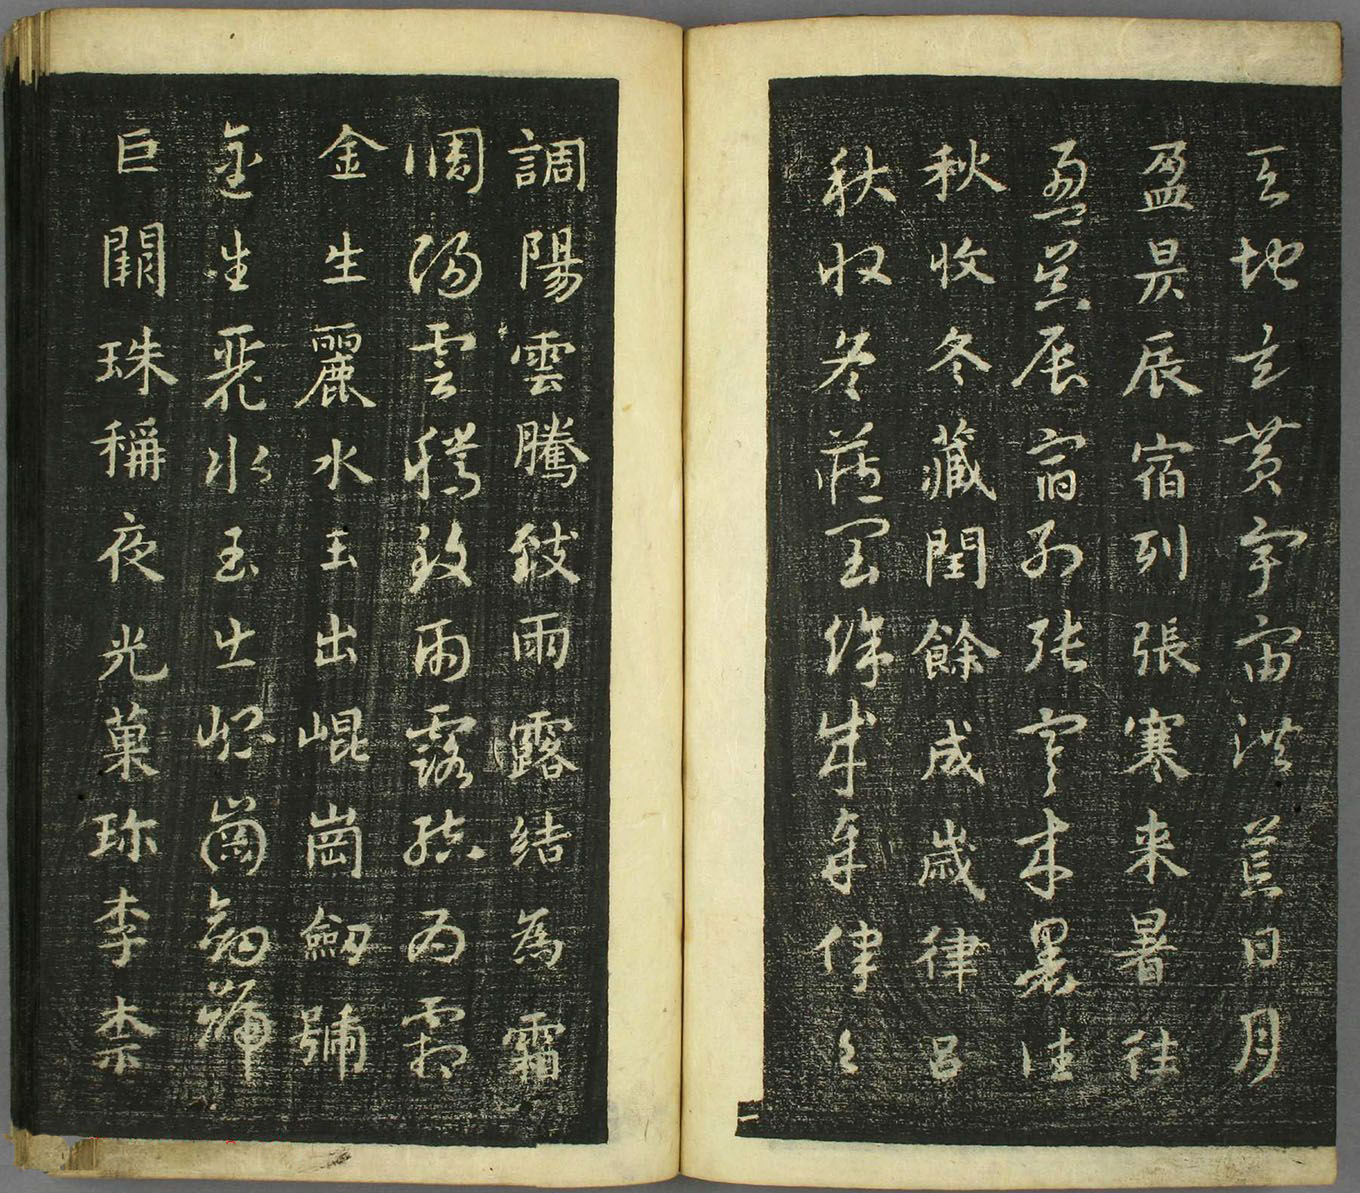 天地玄黃宇宙洪荒日月
盈昃辰宿列張寒来暑往
盈昃辰宿列張寒来暑往
秋收冬藏閏餘成歲律呂
秋收冬藏閏餘成歲律呂
一
調陽雲騰致雨露結為霜
調陽雲騰致雨露結為霜
金生麗水玉出崐崗劔號
金生麗水玉出崐崗劔號
巨闕珠稱夜光菓珎李柰